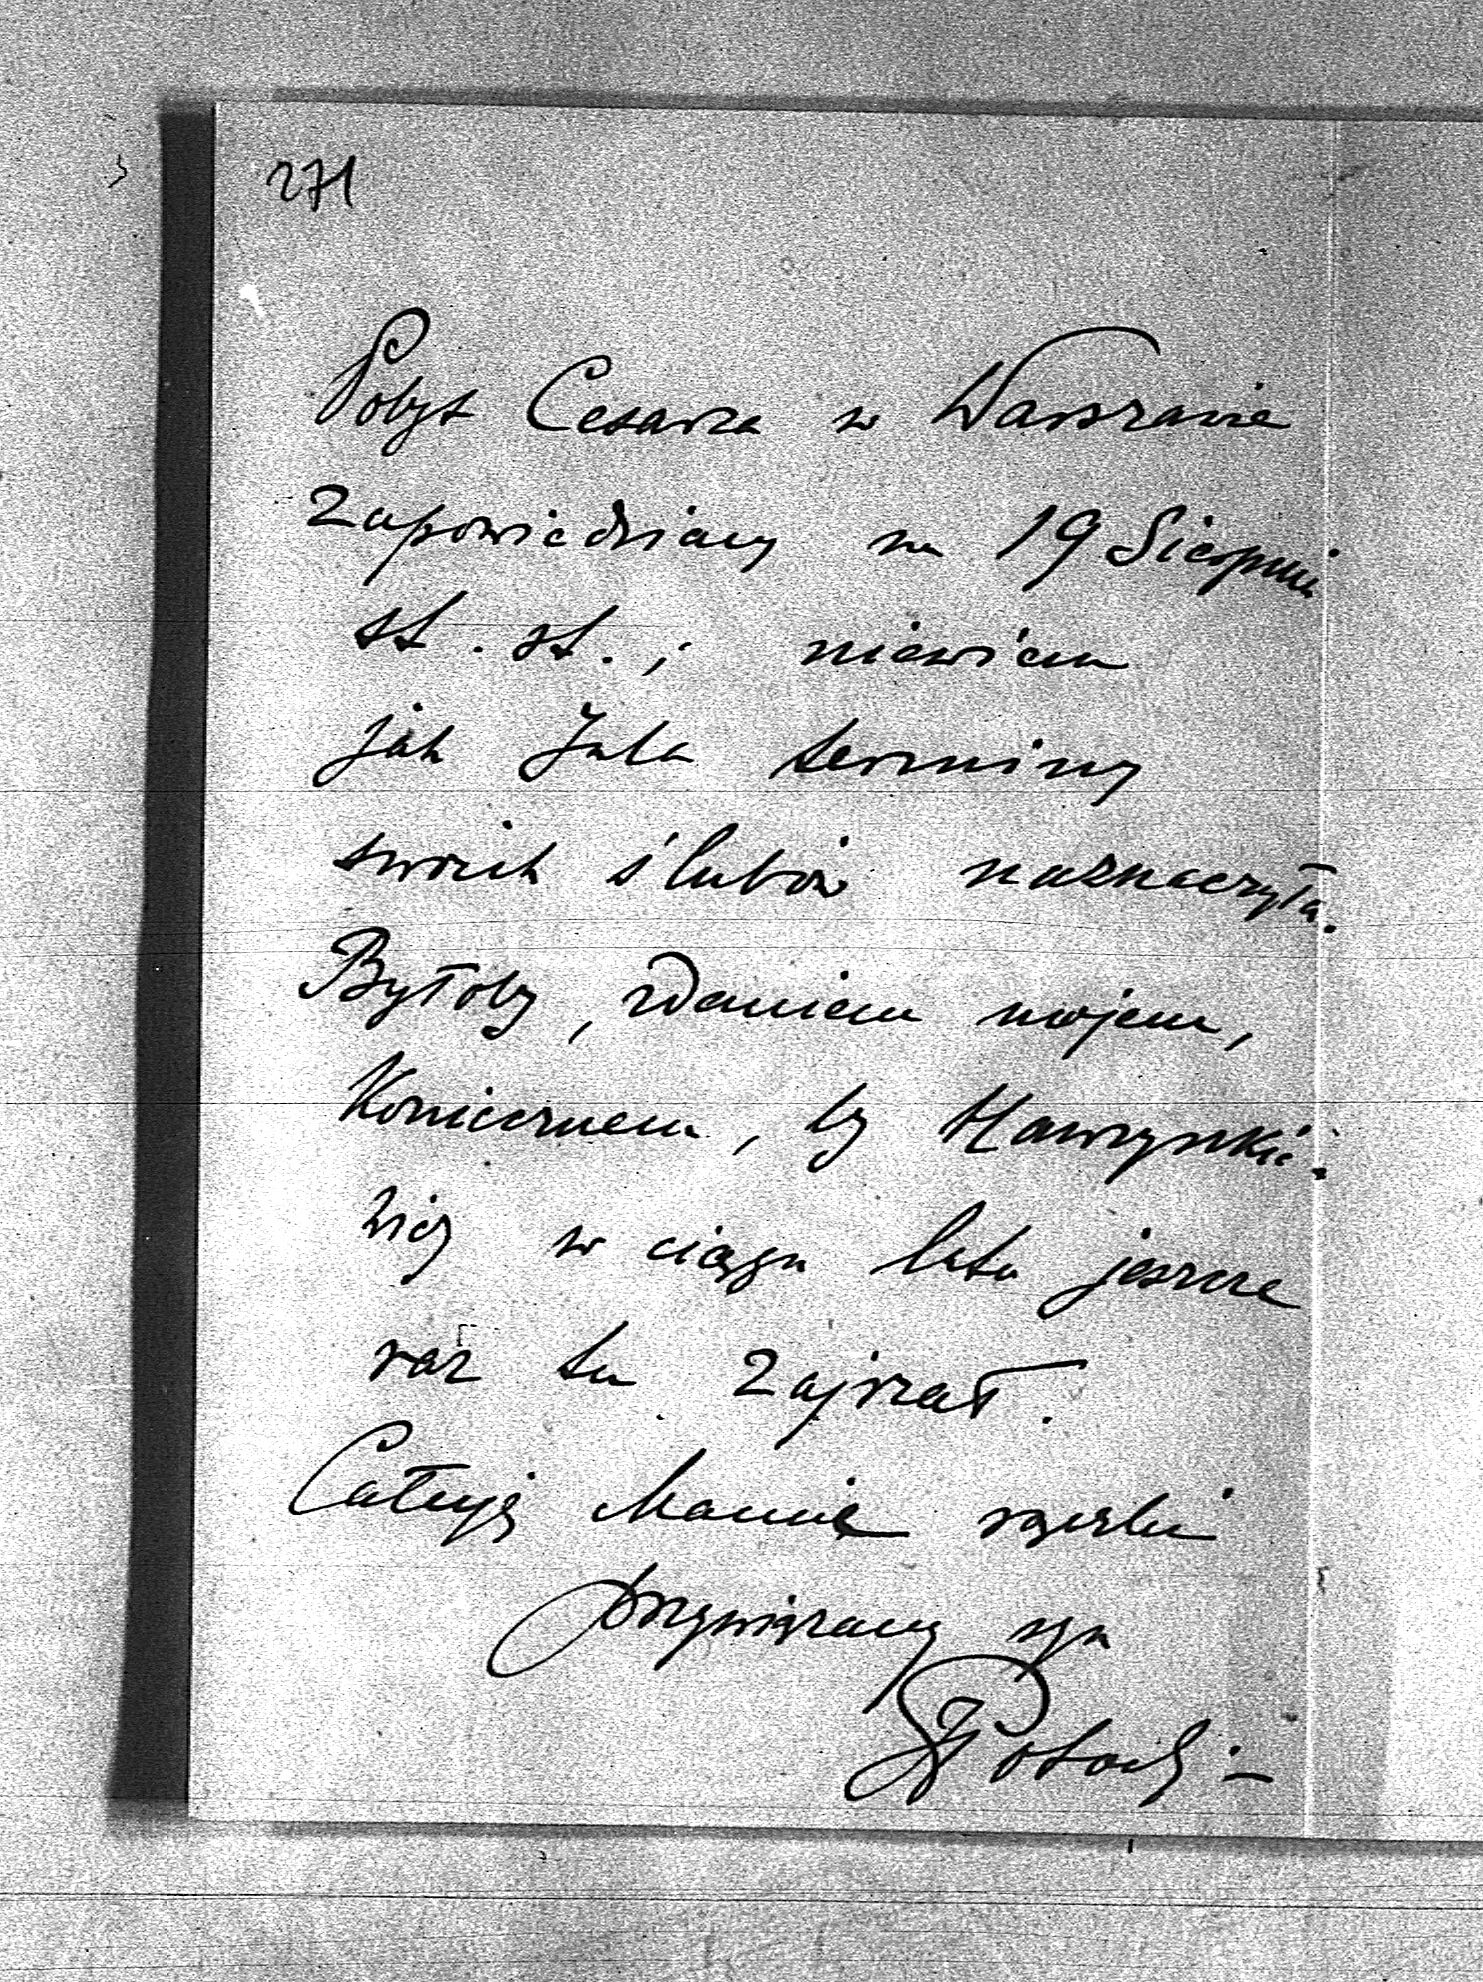 271
Pobyt Cesarza w Warszawie
zapowiedziany na 19 Sierpnia
st. st.; niewiem
jak Jula terminy
swoich ślubów naznaczyła.
Byłoby, zdaniem mojem,
Koniecznem, by Hawrynkie-
wicz w ciągu lata jeszcze
raz tu zajrzał.
Całuję Mamie rączki
przywiązany syn
Potocki